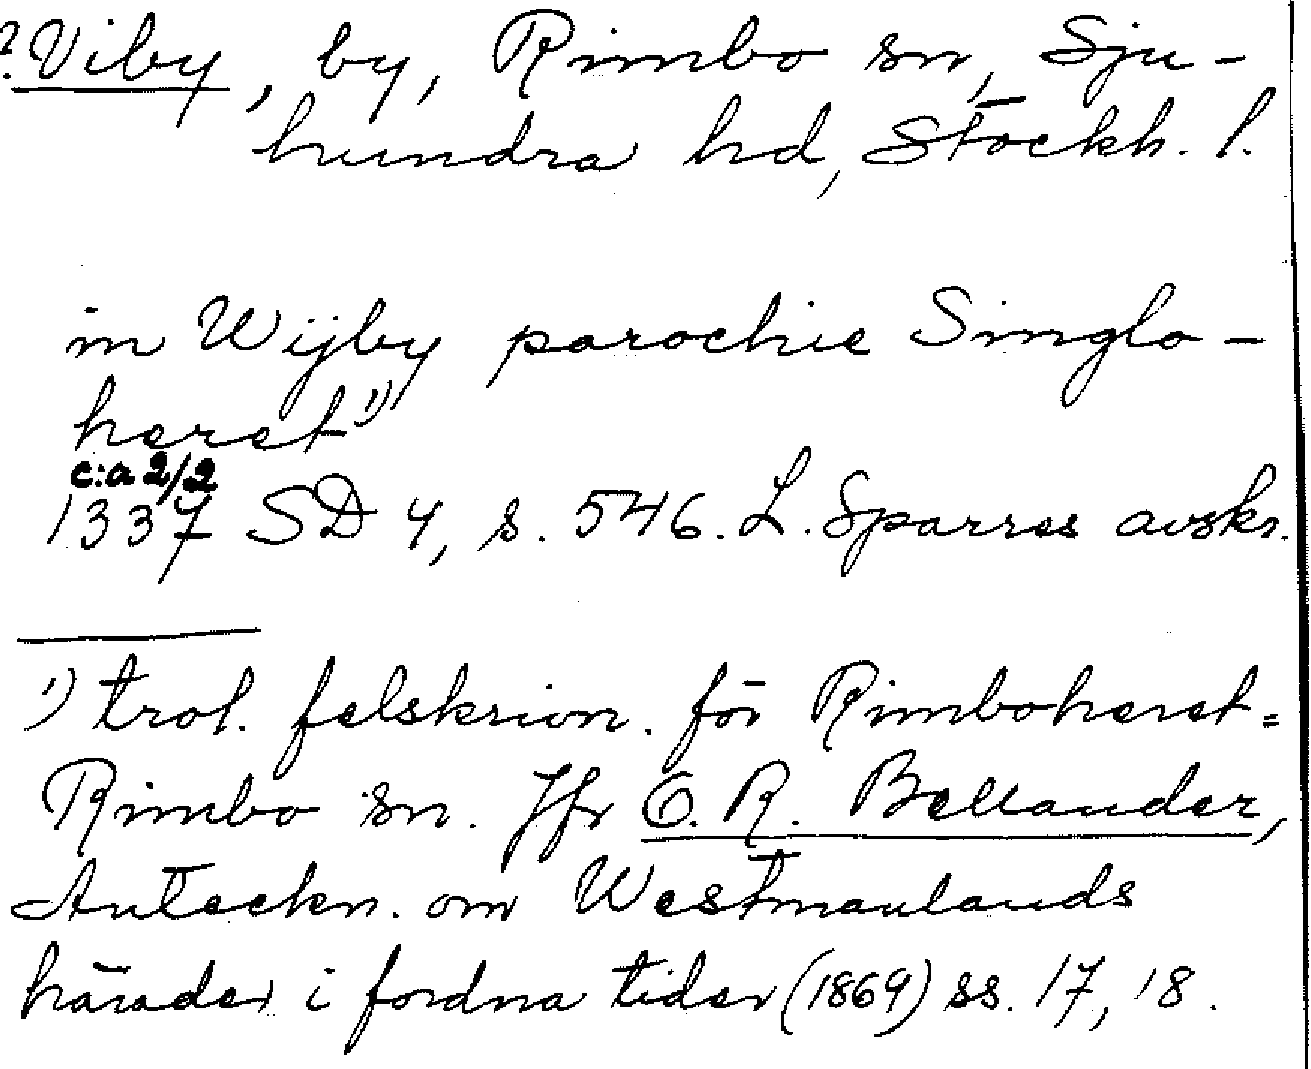 ?Viby, by, Rimbo sn, Sju-
hundra hd, Stockh. l.
in Wijby parochie Singlo-
heret¹⁾
c:a 2/2
1337 SD 4, s. 546. L. Sparres avskr.
¹⁾ trol. felskrivn. för Rimboheret =
Rimbo sn. Jfr O. R. Bellander,
Anteckn. om Westmanlands
härader i fordna tider (1869) ss. 17, 18.